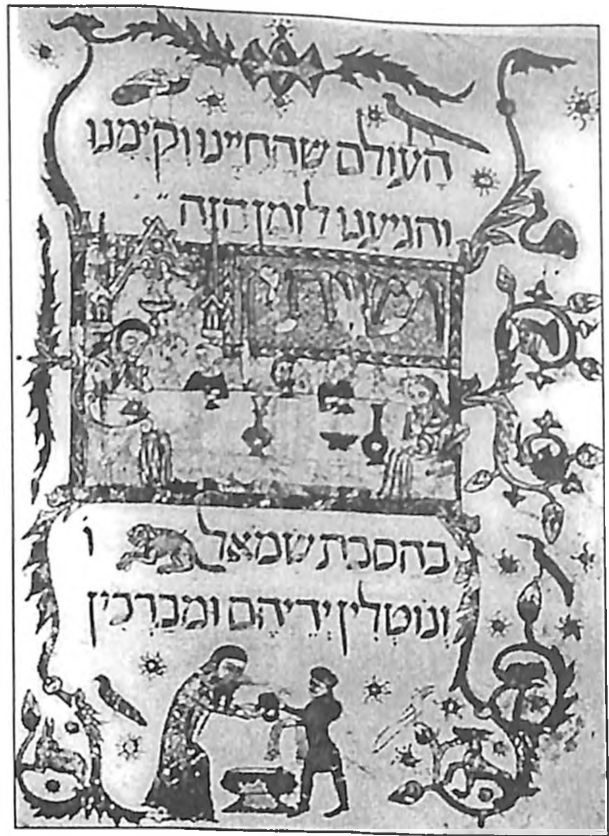 העולם שהחיינו וקימנו
והגיענו לזמן הזה
בהסבת שמאל ו
ונוטלין ידיהם ומברכין